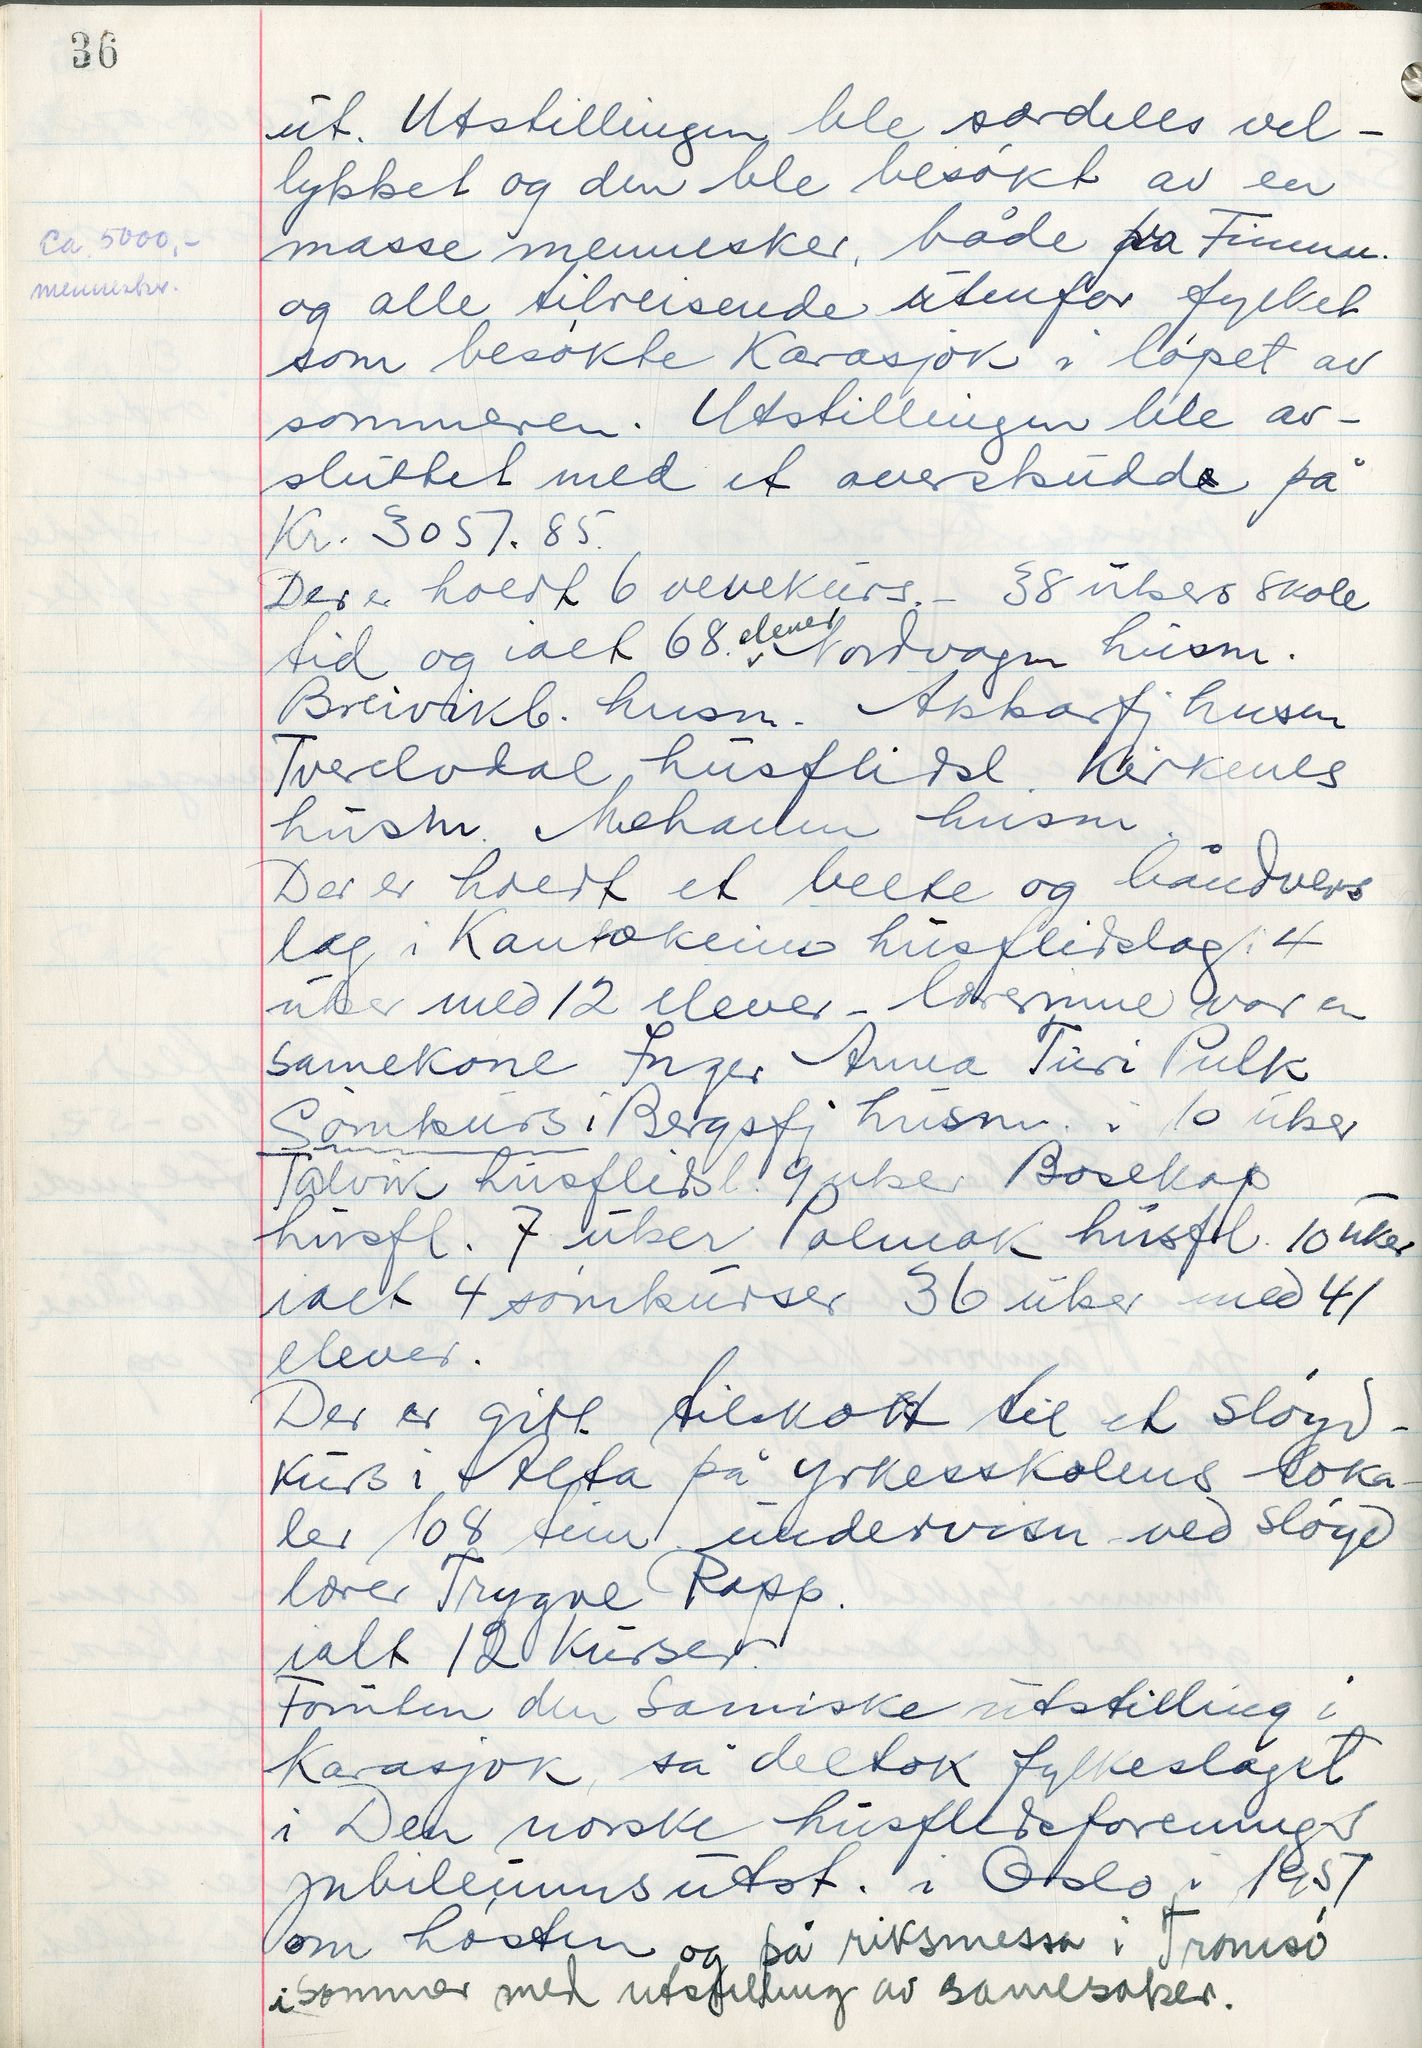 36
út. Utstillingen ble særdeles vel-
lykket og den ble besøkt av en
Ca. 5000,-
mennesker.
masse mennesker, både fra Finnm.
og alle tilreisende utenfor fylket
som besøkte Karasjok i løpet av
sommeren. Utstillingen ble av-
sluttet med et overskudd på
Kr. 3057.85.
Der er holdt 6 vevekurs. - 38 ukers skole
tid og ialt 68 elever. Nordvågen husm.
Breivikb. husm. Akkarfj husm
Tverelvdal husflidsl. Kirkenes
husm. Mehamn husm.
Der er holdt et belte og båndvevs
lag i Kautokeino husflidslag i 4
uker med 12 elever - lærerinne var en
samekone Inger Anna Turi Pulk
Sømkurs i Bergsfj husm. i 10 uker
Talvik husflidsl. 9 uker Bosekop
husfl. 7 uker Polmak husfl. 10 uker
ialt 4 sømkurser 36 uker med 41
elever.
Der er gitt tilskott til et sløyd-
kurs i Alta på yrkesskolens loka-
ler 108 tim undervisn ved sløyd
lærer Trygve Rapp.
ialt 12 kurser.
Foruten den samiske utstilling i
Karasjok, så deltok fylkeslaget
i Den norske husflidsforenings
jubileumsutst. i Oslo i 1957
om høsten og på riksmessa i Tromsø
i sommer med utstilling av samesaker.